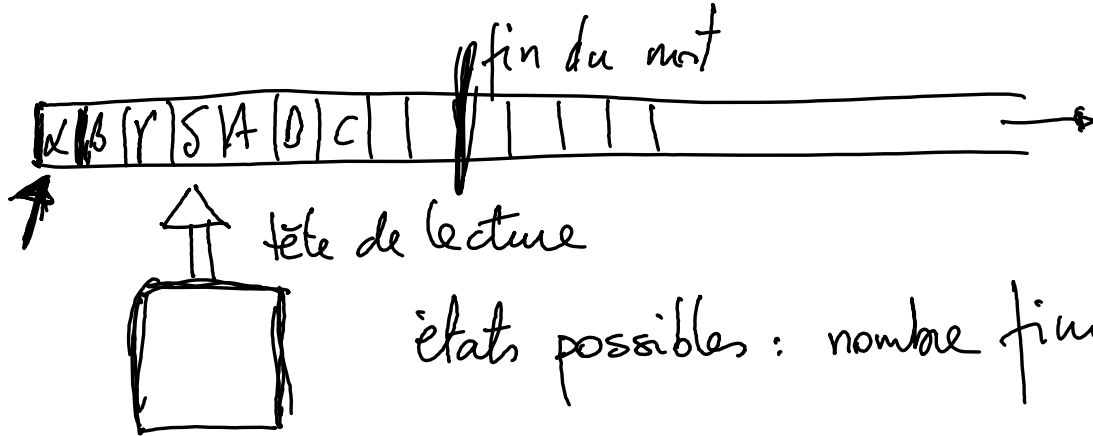 fin du mot
α β γ δ A D C
tête de lecture
états possibles : nombre fini